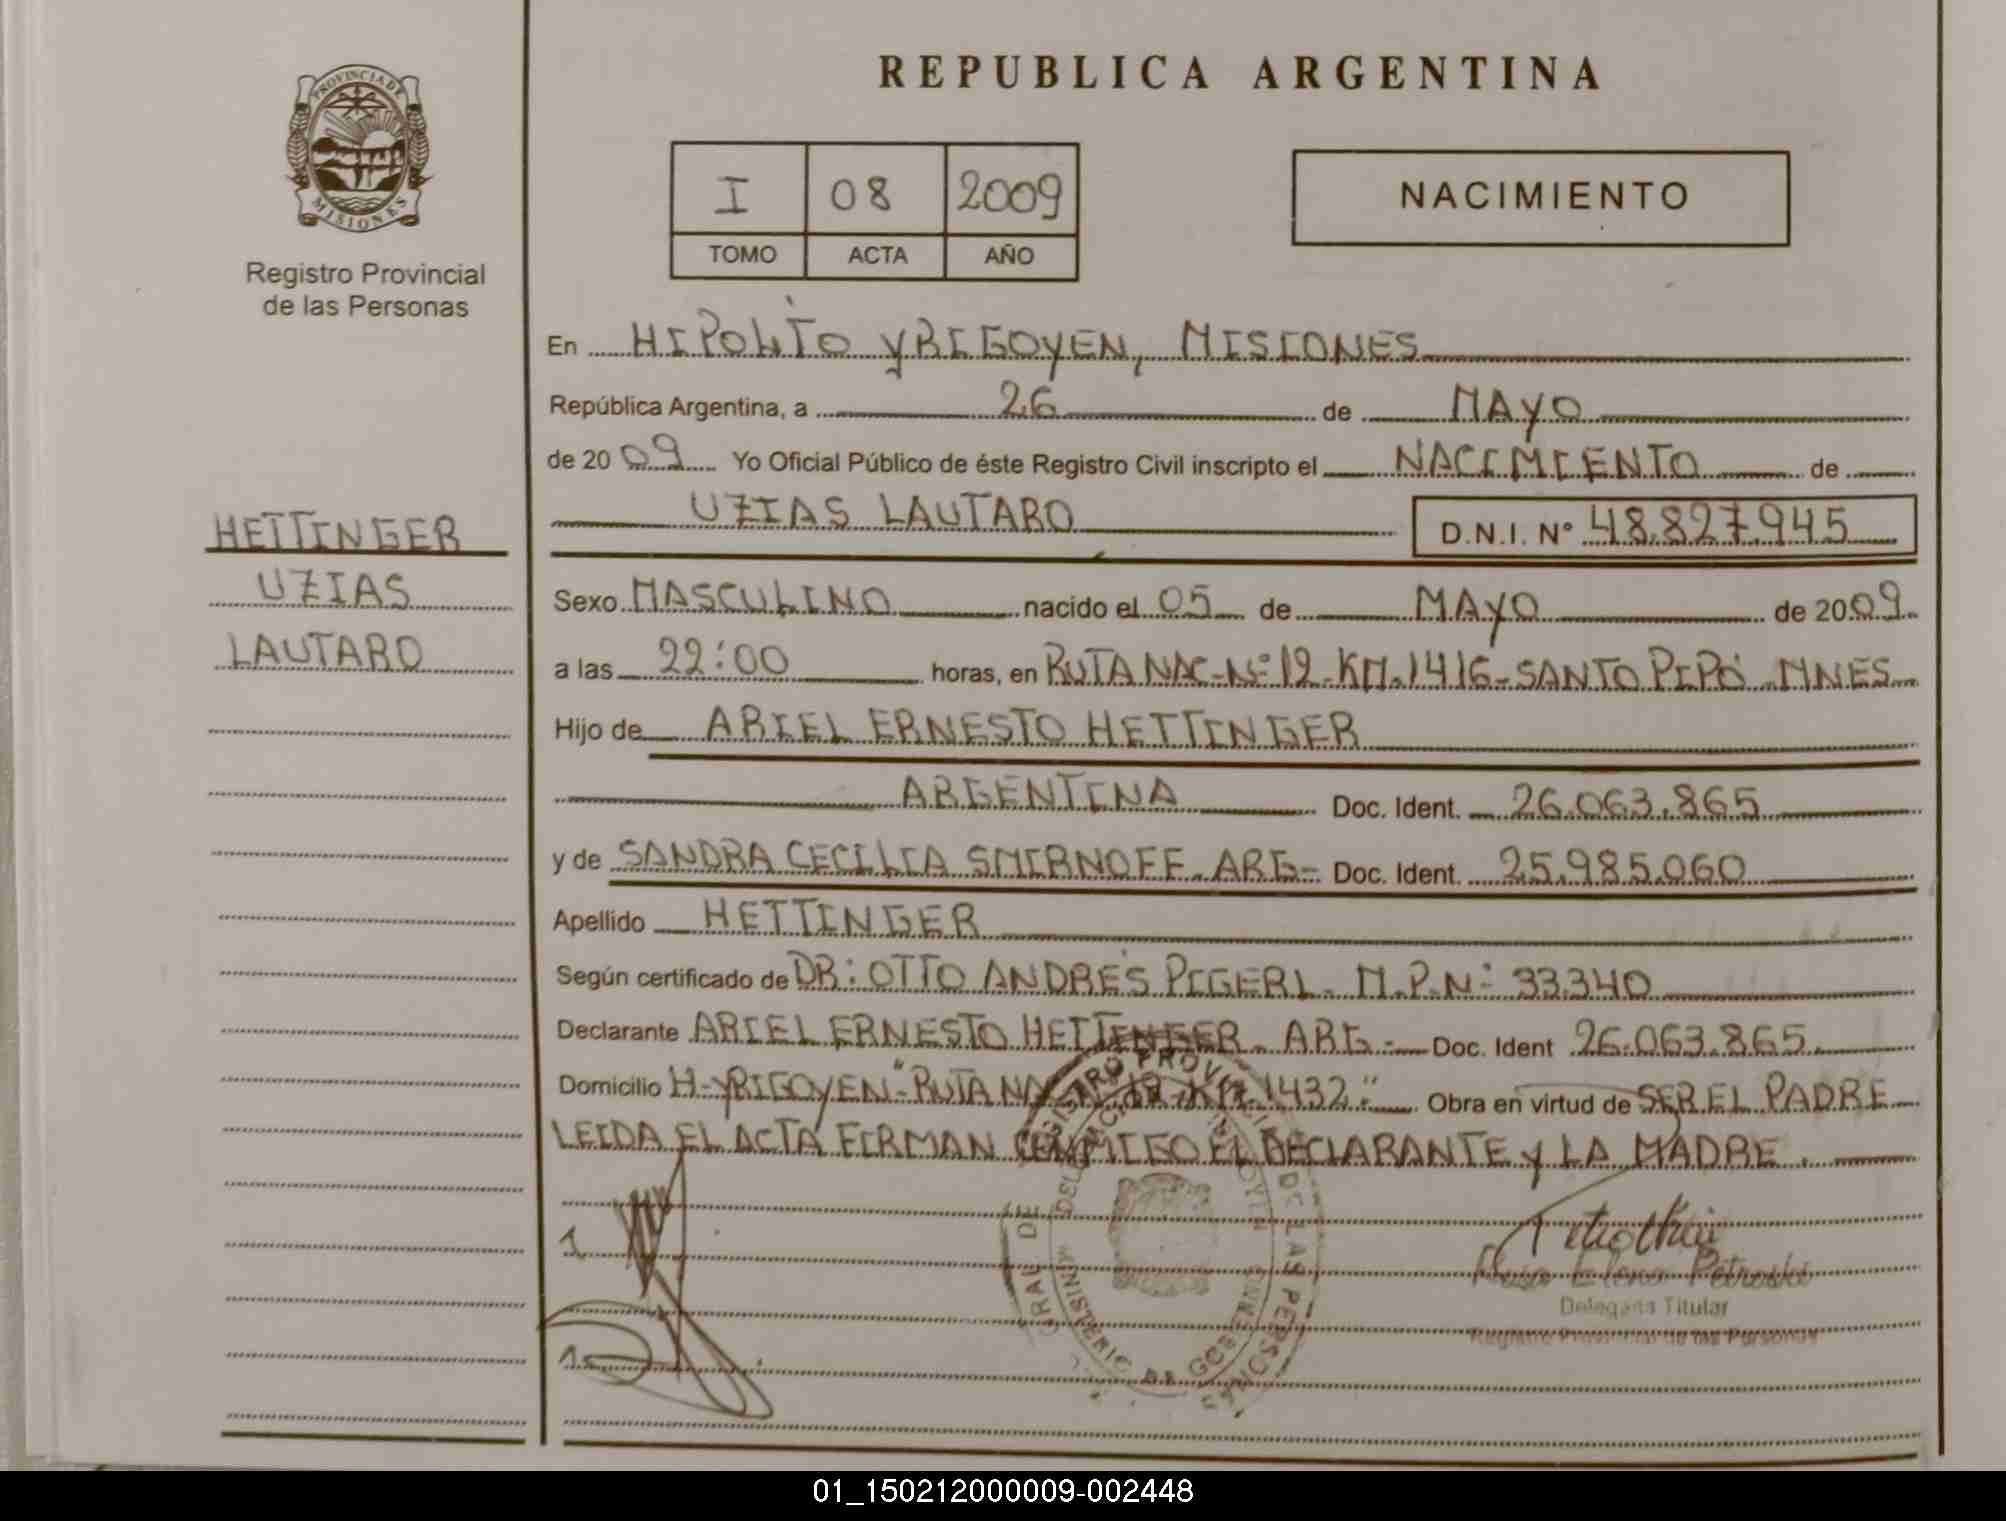 PROVINCIA DE
MISIONES
Registro Provincial
de las Personas
HETTINGER
UZIAS
LAUTARO
REPUBLICA ARGENTINA
I 08 2009
TOMO ACTA AÑO
NACIMIENTO
En HIPOLITO YRIGOYEN, MISIONES
República Argentina, a 26 de MAYO
de 2009 Yo Oficial Público de éste Registro Civil inscripto el NACIMIENTO de
UZIAS LAUTARO D.N.I. Nº 48.827.945
Sexo MASCULINO nacido el 05 de MAYO de 2009
a las 22:00 horas, en RUTA NAC-Nº 12-KM.1416-SANTO PIPÓ MNES
Hijo de ARIEL ERNESTO HETTINGER
ARGENTINA Doc. Ident. 26.063.865
y de SANDRA CECILIA SMIRNOFF. ARG- Doc. Ident. 25.985.060
Apellido HETTINGER
Según certificado de DR: OTTO ANDRÉS PIGERL. M.P.Nº 33340
Declarante ARIEL ERNESTO HETTINGER. ARG.- Doc. Ident 26.063.865
Domicilio H-YRIGOYEN-"RUTA 12-KM.1432." Obra en virtud de SER EL PADRE
LEIDA EL ACTA FIRMAN CONMIGO EL DECLARANTE Y LA MADRE.
Petroski
Delegada Titular
Registro Provincial de las Personas
DE LAS PERSONAS
MINISTERIO DE GOBIERNO
01_150212000009-002448